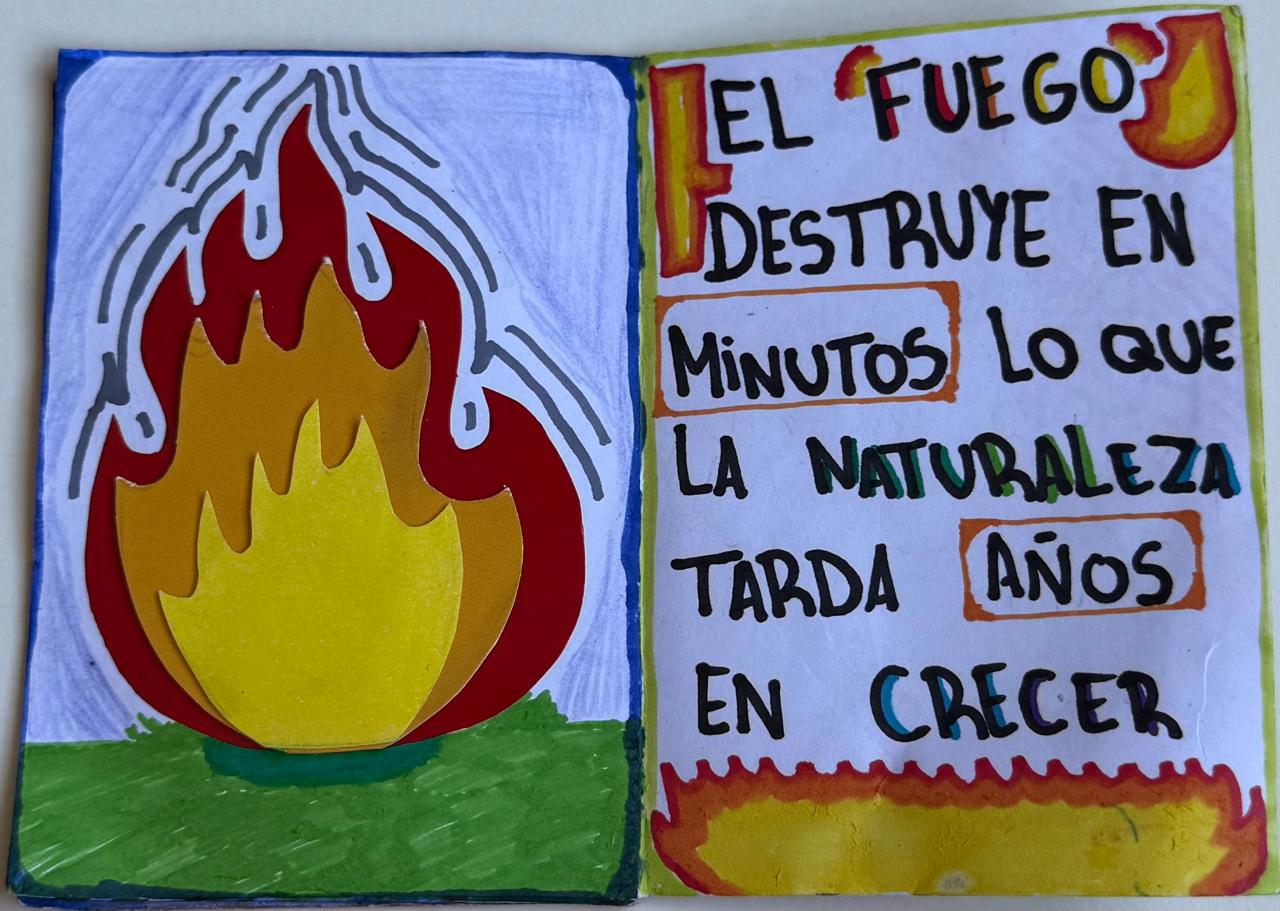 EL "FUEGO"
DESTRUYE EN
MiNUTOS LO QUE
LA NATURALEZA
TARDA AÑOS
EN CRECER